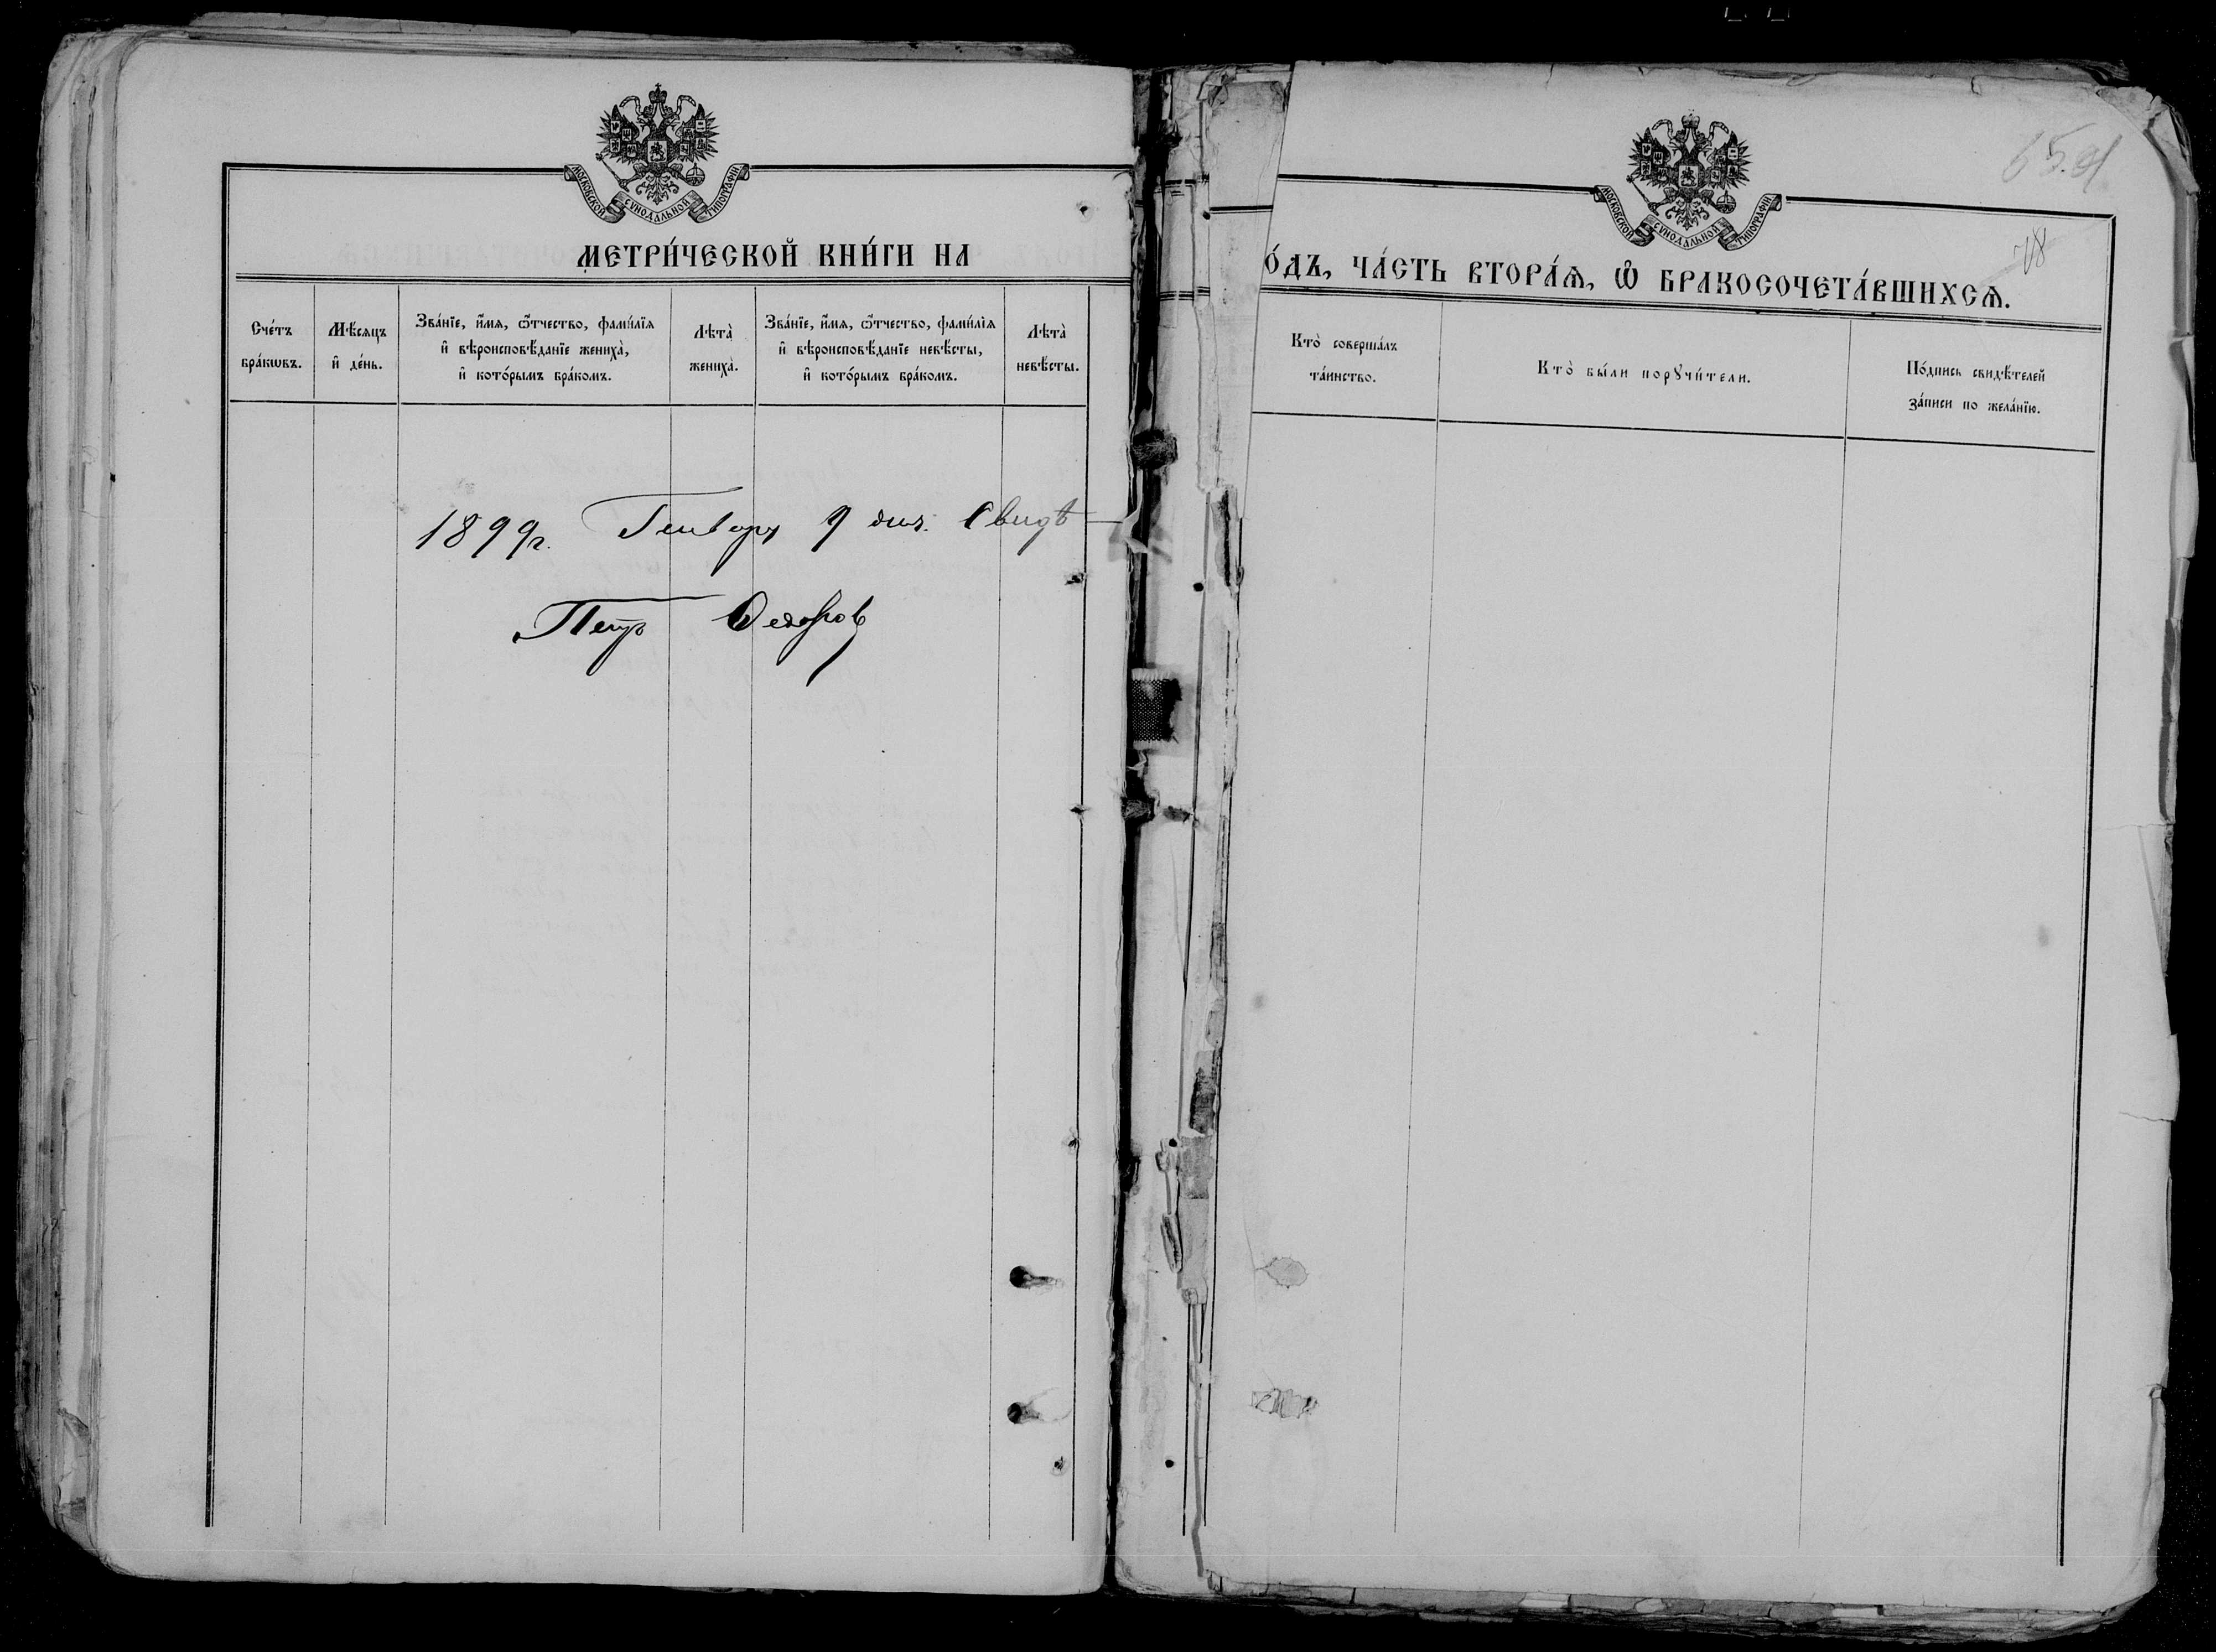 МОСКОВСКОЙ СѴНОДАЛЬНОЙ ТИПОГРАФІИ
МЕТРИ́ЧЕСКОЙ КНИ́ГИ НА
Сче́тъ бра́кѡвъ.
Мѣ́сяцъ и҆ де́нь.
Зва́нїе, и҆́мѧ, ѻ҆́тчество, фами́лїѧ и҆ вѣроисповѣ́данїе жениха̀, и҆ кото́рымъ бра́комъ.
Лѣта̀ жениха̀.
Зва́нїе, и҆́мѧ, ѻ҆́тчество, фами́лїѧ и҆ вѣроисповѣ́данїе невѣ́сты, и҆ кото́рымъ бра́комъ.
Лѣта̀ невѣ́сты.
1899г. Генваря 9 дня. Свидѣ
Петръ Ѳедоровъ
МОСКОВСКОЙ СѴНОДАЛЬНОЙ ТИПОГРАФІИ
78
О́ДЪ, ЧА́СТЬ ВТОРА́Ѧ, Ѡ҆ БРАКОСОЧЕТА́ВШИХСѦ.
Кто̀ соверша́лъ та́инство.
Кто̀ бы́ли порꙋчи́тели.
По́дпись свидѣ́телей за́писи по жела́нїю.